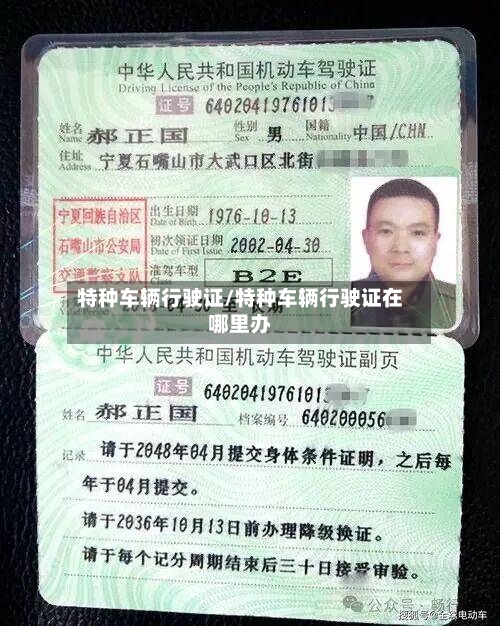 中华人民共和国机动车驾驶证
Driving License of the People's Republic of China
证号 64020419761013
姓名 Name 郝正国 性别 Sex 男 国籍 Nationality 中国/CHN
住址 Address 宁夏石嘴山市大武口区北街
宁夏回族自治区
石嘴山市公安局
交通警察支队
出生日期 Date of Birth 1976-10-13
初次领证日期 Date of First Issue 2002-04-30
准驾车型 B2E
Valid Period 至 长期
特种车辆行驶证/特种车辆行驶证在
哪里办
中华人民共和国机动车驾驶证副页
证号 64020419761013
姓名 郝正国 档案编号 640200056
记录 请于2048年04月提交身体条件证明，之后每
年于04月提交。
请于2036年10月13日前办理降级换证。
请于每个记分周期结束后三十日接受审验。
公众号·畅行
搜狐号@全球电动车